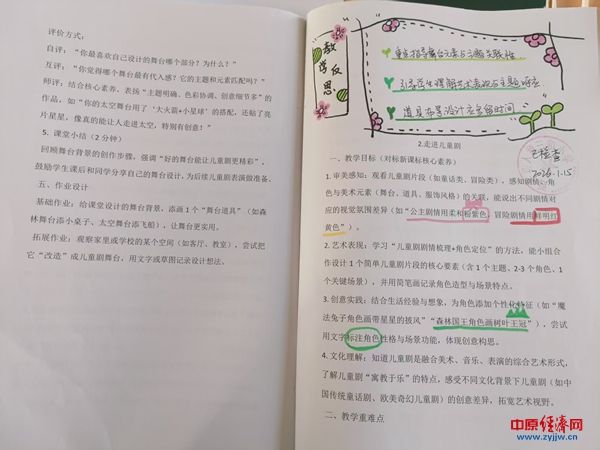 评价方式：
自评：“你最喜欢自己设计的舞台哪个部分？为什么？”
互评：“你觉得哪个舞台最有代入感？它的主题和元素匹配吗？”
师评：结合核心素养，表扬“主题明确、色彩协调、创意细节多”的
作品，如“你的太空舞台用了‘大火箭+小星球’的搭配，还贴了亮
片星星，像真的能让人走进太空，特别有创意！”
5. 课堂小结（2 分钟）
回顾舞台背景的创作步骤，强调“好的舞台能让儿童剧更精彎”，
鼓励学生课后和同学分享自己的舞台设计，为后续儿童剧表演做准备。
五、作业设计
基础作业：给课堂设计的舞台背景，添画 1 个“舞台道具”（如森
林舞台添小桌子、太空舞台添飞船），让舞台更实用。
拓展作业：观察家里或学校的某个空间（如客厅、教室），尝试把
它“改造”成儿童剧舞台，用文字或草图记录设计想法。
教学反思
重点指导舞台元素与主题关联性
引导学生理解艺术表现与主题呼应
道具布景设计应多留时间
2.走进儿童剧
已检查
2026.1.15
一、教学目标（对标新课标核心素养）
1. 审美感知：观看儿童剧片段（如童话类、冒险类），感知剧情、角
色与美术元素（舞台、道具、服饰风格）的关联，能说出不同剧情对
应的视觉氛围差异（如“公主剧情用柔和粉紫色，冒险剧情用鲜明红
黄色”）。
2. 艺术表现：学习“儿童剧剧情梳理+角色定位”的方法，能小组合
作设计 1 个简单儿童剧片段的核心要素（含 1 个主题、2-3 个角色、1
个关键场景），并用简笔画记录角色造型与场景特点。
3. 创意实践：结合生活经验与想象，为角色添加个性化特征（如“魔
法兔子角色画带星星的披风”“森林国王角色画树叶王冠”），尝试
用文字标注角色性格与场景功能，体现创意构思。
4. 文化理解：知道儿童剧是融合美术、音乐、表演的综合艺术形式，
了解儿童剧“寓教于乐”的特点，感受不同文化背景下儿童剧（如中
国传统童话剧、欧美奇幻儿童剧）的创意差异，拓宽艺术视野。
二、教学重难点
中原经济网
www.zyjjw.cn